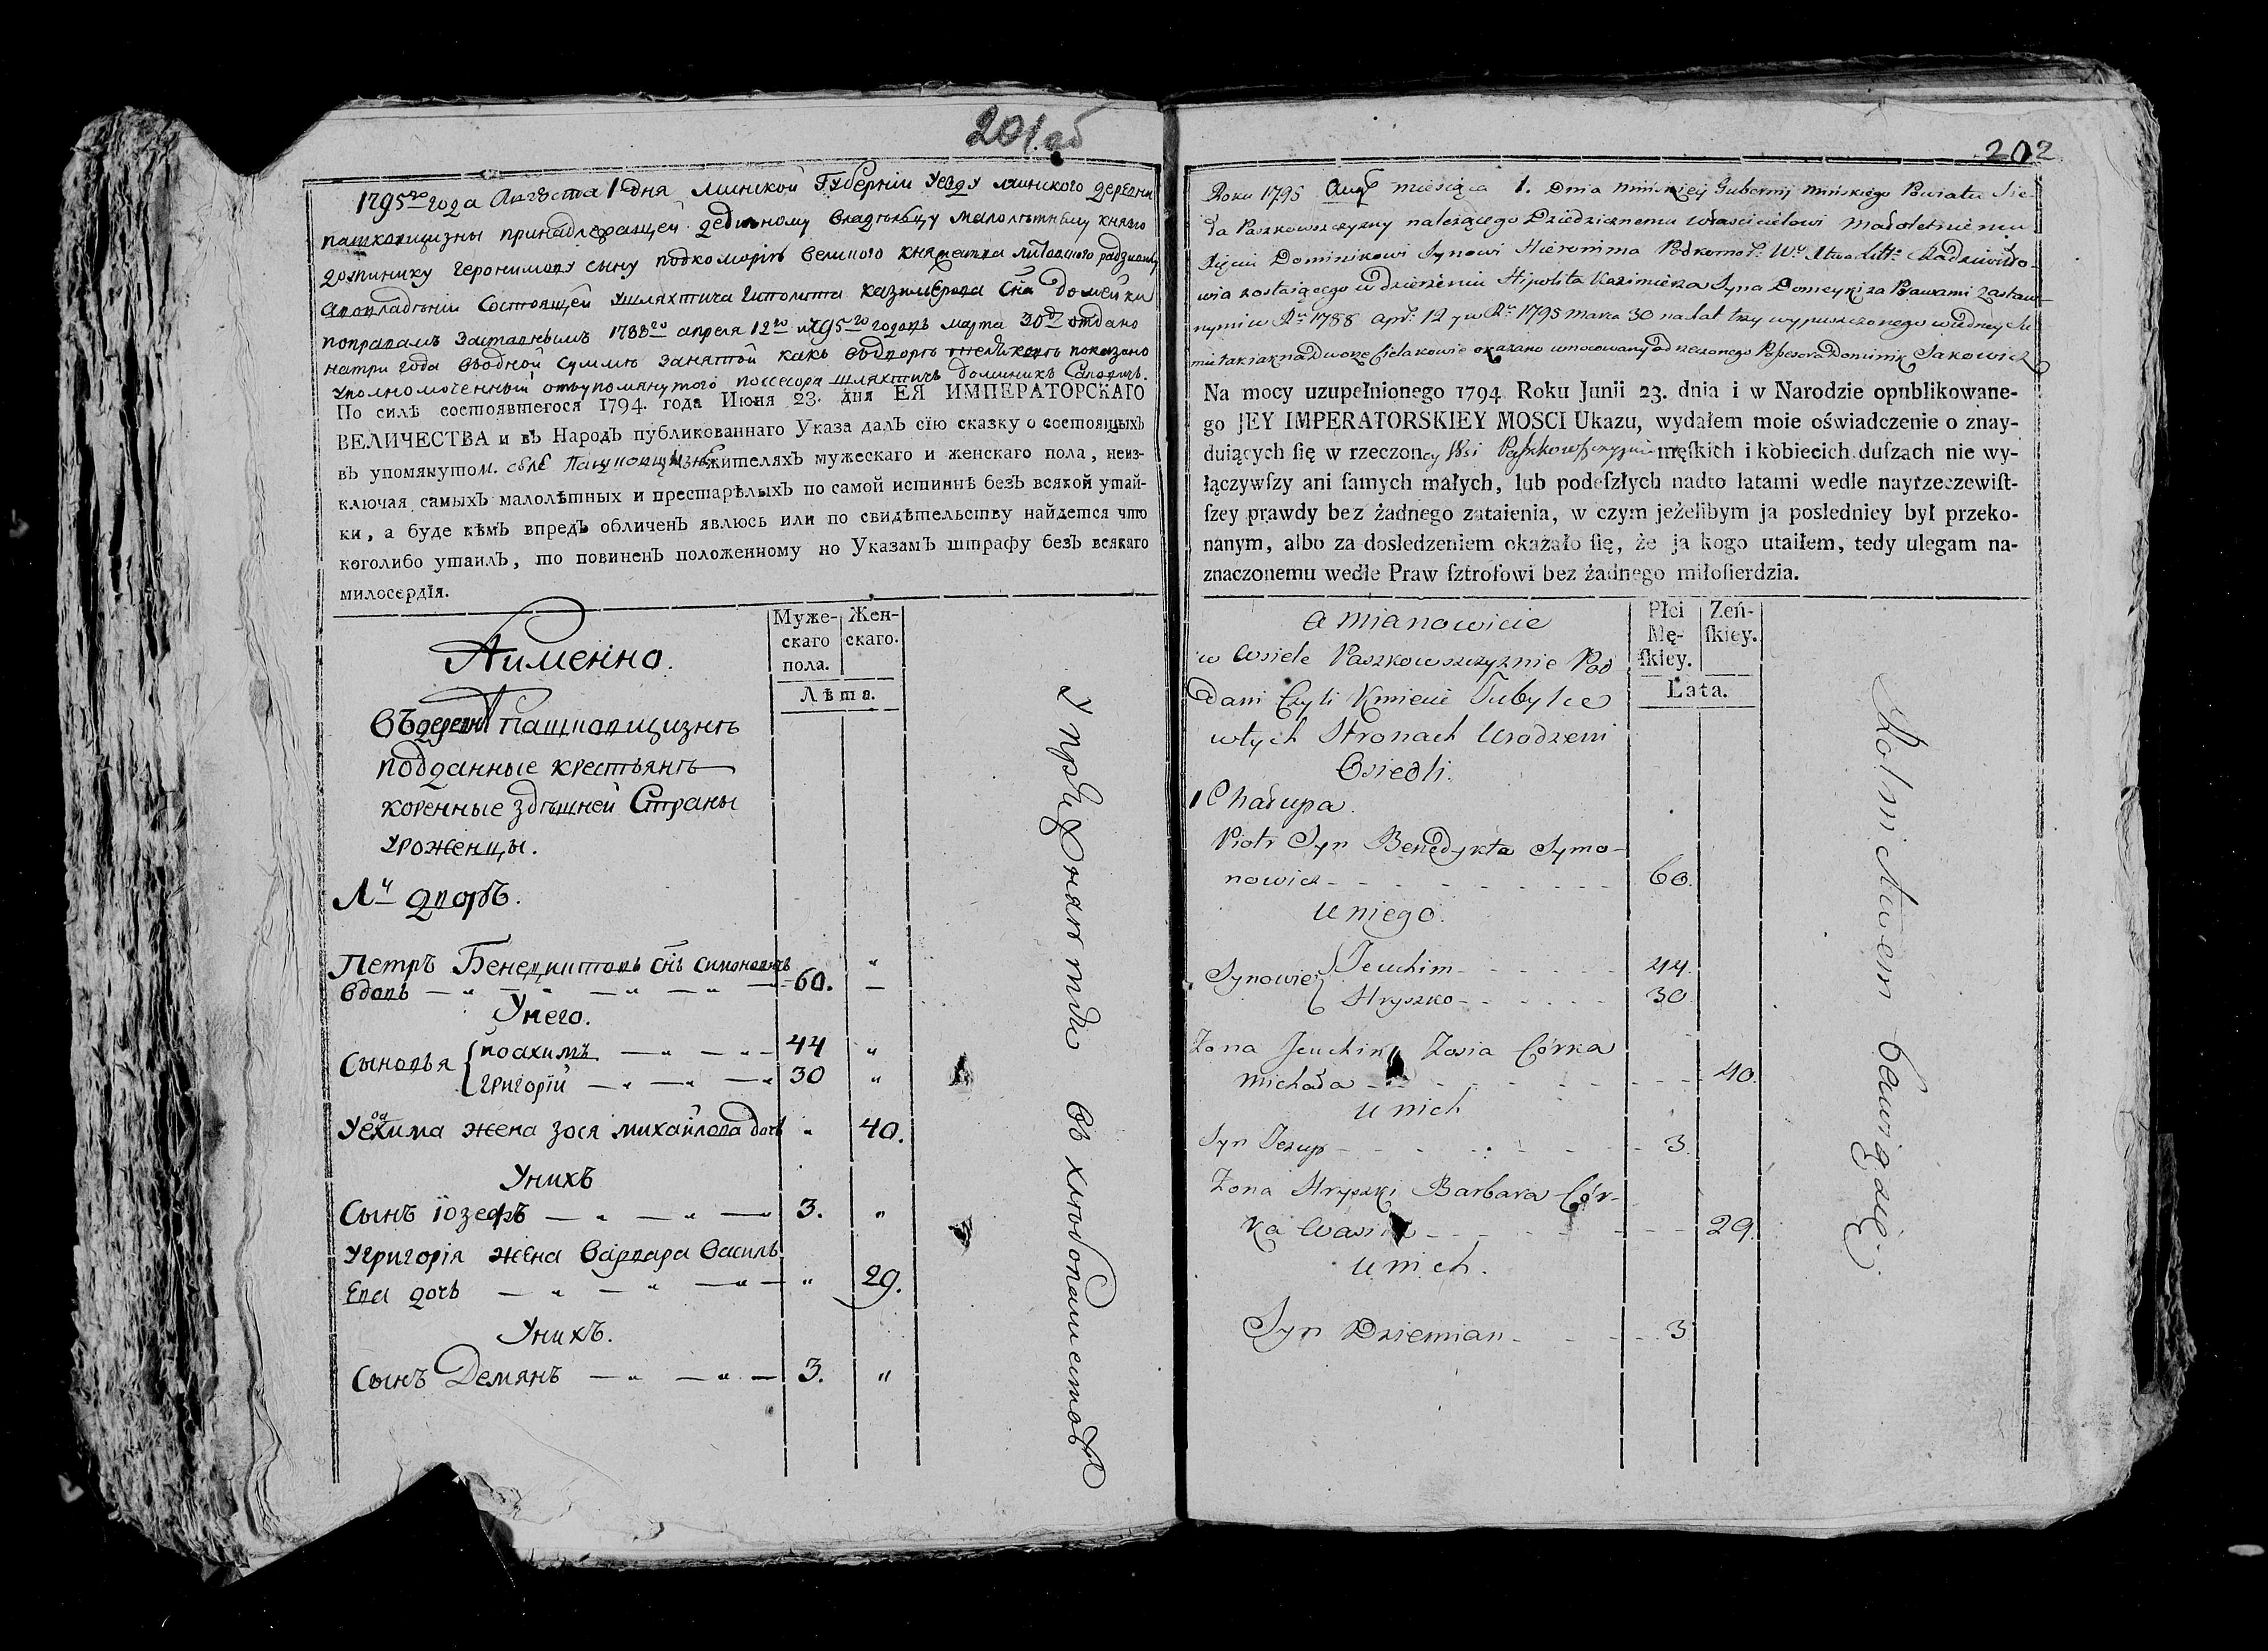 201.об
1795го года Августа 1 дня Минской Губерніи Уезду Минского деревни
пашковщизны принадлежащей дедичному владѣльцу малолѣтнему князю
доминику геронимову сыну подкоморiя великого княжества литовского радзивилу
авовладѣніи состоящей ушляхтича гиполита казимерова сна домейки
поправамъ заставнымъ 1788го апреля 12го и 795го годовъ марта 30 отдано
натри года вводной суммѣ занятой какъ
уполномоченный отъупомянутого поссесора шляхтичъ доминикъ
По силѣ состоявшегося 1794. года Июня 23. дня ЕЯ ИМПЕРАТОРСКАГО
ВЕЛИЧЕСТВА и въ Народъ публикованнаго Указа далъ сїю сказку о состоящыхъ
въ упомянутом. селе Пашковщизнѣ жителяхъ мужескаго и женскаго пола, неиз-
ключая самыхъ малолѣтных и престарѣлыхъ по самой истиннѣ безъ всякой утай-
ки, а буде кѣмъ впредъ обличенъ явлюсь или по свидѣтельству найдется что
коголибо утаилъ, то повиненъ положенному по Указамъ штрафу безъ всякаго
милосердїя.
Аименно.
Муже-
скаго
пола.
Жен-
скаго.
Лѣта.
Въдеревнѣ пашковщизнѣ
подданные крестьянѣ
коренные здѣшней Страны
уроженцы.
дворъ.
Петръ Бенедиктовъ снъ симоновичъ
вдовъ — „ — „ — „ — „ — 60. —
Унего.
Сыновья { иоахимъ — „ — „ — 44 „
григорiй — „ — „ — „ 30 „
Уехима жена зося михайлова дочь „ 40.
Унихъ
Сынъ iозефъ — „ — „ — „ 3. „
Угригорiя жена варвара василь
ева дочь — „ — „ — „ — „ 29.
Унихъ.
Сынъ Демянъ — „ — „ — 3. „
въ хлѣбопашествѣ
202
Roku 1795 Augt miesiąca 1. Dnia minskiey Gubernij Mińskiego Powiatu Sie-
ła Paszkowszczyzny należącego Dziedzicznemu właścicielowi Małoletniemu
Xięciu Dominikowi Synowi Hieronima Podkomor: W. Xtwa Litt: Radziwiłło-
wia zostaiącego w dzierżeniu Hipolita Kazimierza Syna Domeyki za Prawami zastaw-
nymi w Ru 1788 apr: 12 y w Ru 1795 Marca 30 na lat trzy wypuszczonego w iedney Su-
mie iak na Dworze okazano umocowany od rzeczonego Possesora Dominik
Na mocy uzupełnionego 1794 Roku Junii 23. dnia i w Narodzie opublikowane-
go JEY IMPERATORSKIEY MOSCI Ukazu, wydałem moie oświadczenie o znay-
duiących ſię w rzeczoney Wsi Paszkowszczyznie męſkich i kobiecich duſzach nie wy-
łączywſzy ani ſamych małych, lub podeſzłych nadto latami wedle nayrzeczewiſt-
ſzey prawdy bez żadnego zataienia, w czym jeżelibym ja poslednicy był przeko-
nanym, albo za dosledzeniem okazało ſię, że ja kogo utaiłem, tedy ulegam na-
znaczonemu wedle Praw ſztrofowi bez żadnego miłoſierdzia.
a mianowicie
Płci
Mę-
ſkiey.
Żeń-
ſkiey.
Lata.
w wsiele Paszkowszczyznie Pod
dani Czyli Kmiecie Tubylce
w tych Stronach Urodzeni
Osiedli.
1 Chałupa.
Piotr Syn Benedykta Symo-
nowicz - - - - - - - - 60.
u niego.
Synowie { Jeuchim - - - - - - 44.
Hryszko - - - - - - 30.
Żona Jeuchima Zosia Córka
Michała - - - - - - - - 40.
u nich
Syn Jezup - - - - - - - 3.
Żona Hryszki Barbara Cór-
ka - - - - - - - 29.
u nich.
Syn Dziemian - - - - 3
Rolnictwem bawią się.